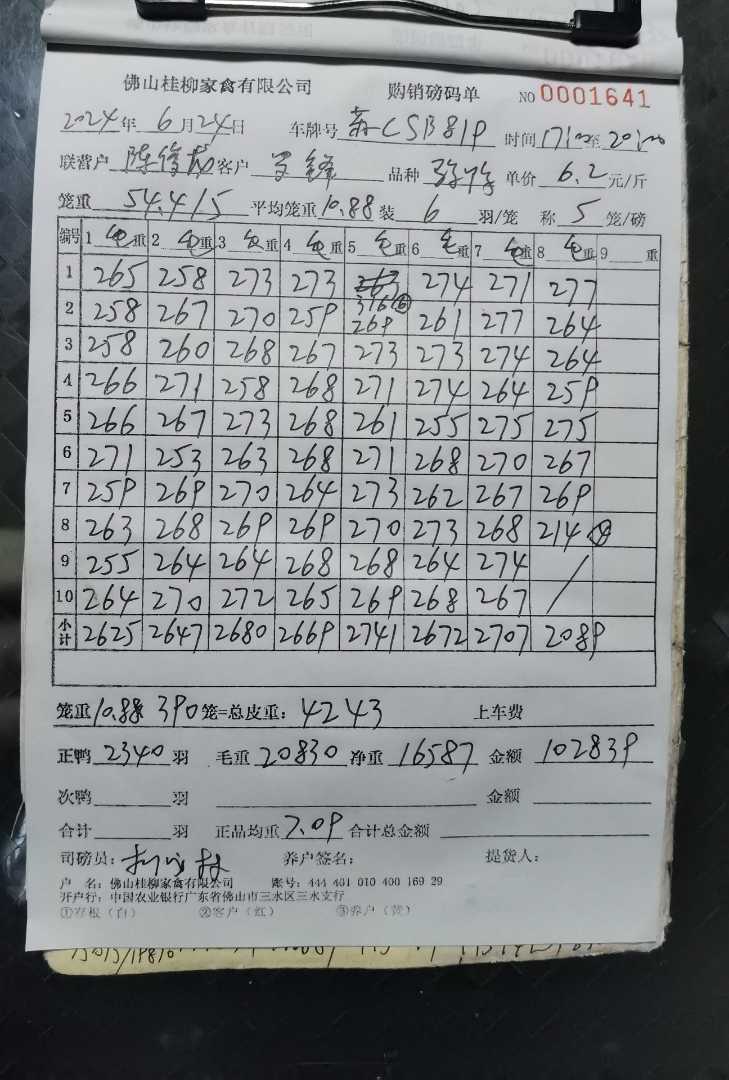 佛山桂柳家禽有限公司 购销磅码单 NO 0001641
2024年 6月24日 车牌号 CSB819 时间 17:00至20:00
联营户 陈俊 客户 锋 品种 单价 6.2 元/斤
笼重 54.4/5 平均笼重 10.88 装 6 羽/笼 称 5 笼/磅
编号 1 毛重 2 毛重 3 毛重 4 毛重 5 毛重 6 毛重 7 毛重 8 毛重 9 重
1 265 258 273 273 263 274 271 277
316⑥
2 258 267 270 259 269 261 277 264
3 258 260 268 267 273 273 274 264
4 266 271 258 268 271 274 264 259
5 266 267 273 268 261 255 275 275
6 271 253 263 268 271 268 270 267
7 259 269 270 264 273 262 267 269
8 263 268 269 269 270 273 268 214 ④
9 255 264 264 268 268 264 274 /
10 264 270 272 265 269 268 267 /
小计 2625 2647 2680 2669 2741 2672 2707 2089
笼重 10.88 390 笼=总皮重: 4243 上车费
正鸭 2340 羽 毛重 20830 净重 16587 金额 102839
次鸭 羽 金额
合计 羽 正品均重 7.09 合计总金额
司磅员: 养户签名: 提货人:
户 名: 佛山桂柳家禽有限公司 账号: 444 401 010 400 169 29
开户行: 中国农业银行广东省佛山市三水区三水支行
①存根(白) ②客户(红) ③养户(黄)